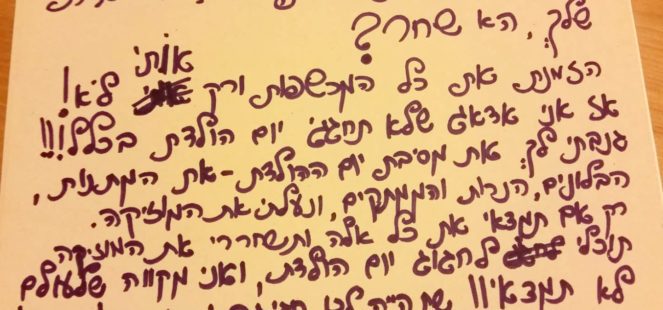 שלך, הא שחר?
אותי
הזמנת את כל המכשפות ורק לא!
אז אני אדאג שלא תחגגי יום הולדת בכלל!!!
גנבתי לך את מסיבת יום ההולדת - את המתנות,
הבלונים, הנרות והממתקים, ונעלתי את המוזיקה.
רק אם תמצאי את כל אלה ותשחררי את המוזיקה
תוכלי לחגוג יום הולדת, ואני מקווה שלעולם
לא תמצאי!!